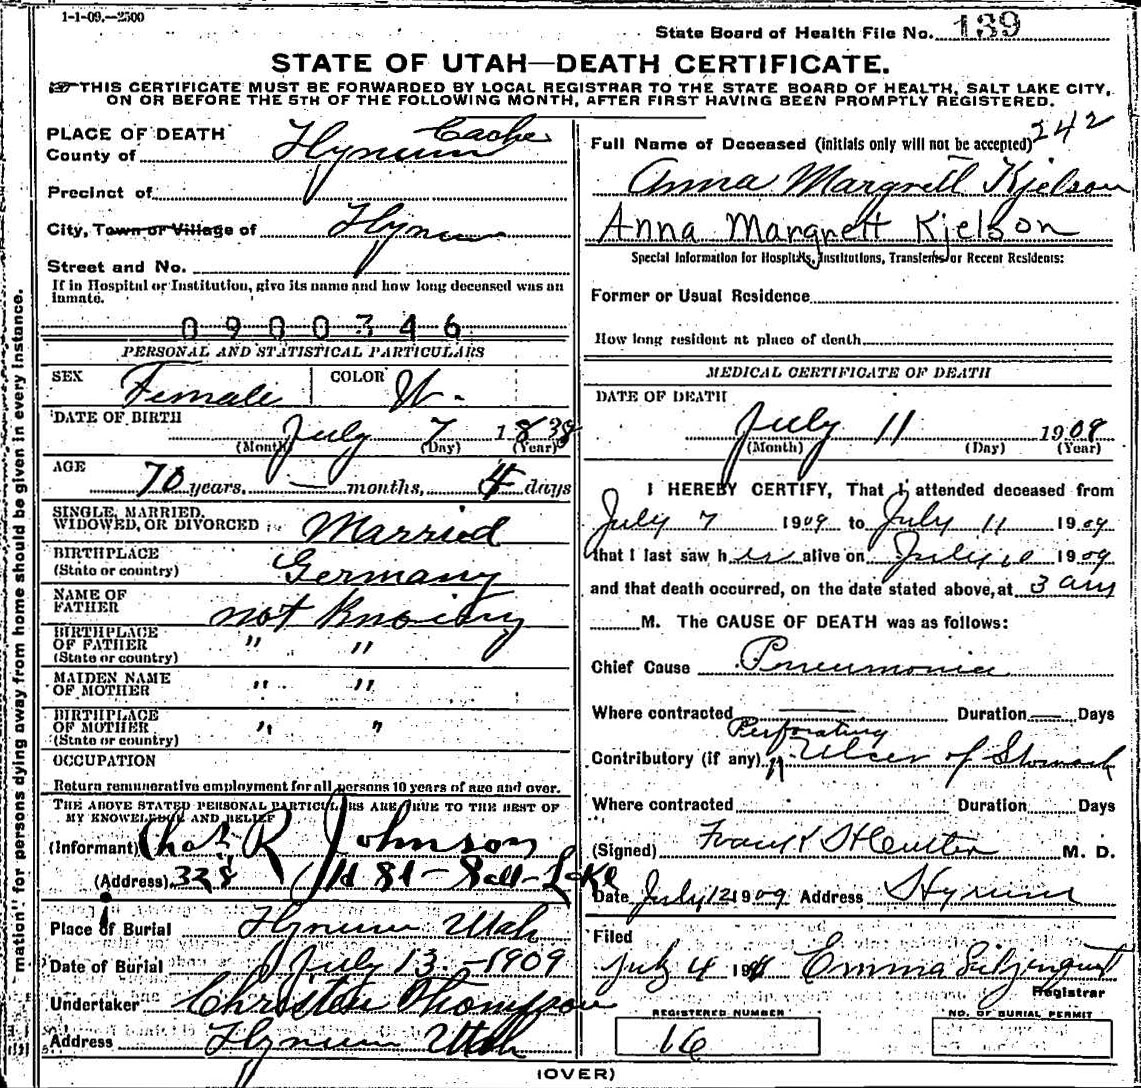 1-1-09.—2500
State Board of Health File No. 139
STATE OF UTAH—DEATH CERTIFICATE.
THIS CERTIFICATE MUST BE FORWARDED BY LOCAL REGISTRAR TO THE STATE BOARD OF HEALTH, SALT LAKE CITY,
ON OR BEFORE THE 5TH OF THE FOLLOWING MONTH, AFTER FIRST HAVING BEEN PROMPTLY REGISTERED.
PLACE OF DEATH
County of Hyrum Cache
Precinct of
City, Town or Village of Hyrum
Street and No.
If in Hospital or Institution, give its name and how long deceased was an
inmate.
0900346
PERSONAL AND STATISTICAL PARTICULARS
SEX Female COLOR W.
DATE OF BIRTH
July 7 1838
(Month) (Day) (Year)
AGE
70 years, — months, 4 days
SINGLE, MARRIED,
WIDOWED, OR DIVORCED Married
BIRTHPLACE
(State or country) Germany
NAME OF
FATHER not Knowing
BIRTHPLACE
OF FATHER " "
(State or country)
MAIDEN NAME
OF MOTHER " "
BIRTHPLACE
OF MOTHER " "
(State or country)
OCCUPATION
Return remunerative employment for all persons 10 years of age and over.
THE ABOVE STATED PERSONAL PARTICULARS ARE TRUE TO THE BEST OF
MY KNOWLEDGE AND BELIEF
(Informant) Chas R Johnson
(Address) 328 St - Salt Lake
Place of Burial Hyrum Utah
Date of Burial July 13 - 1909
Undertaker Christen Thompson
Address Hyrum Utah
242
Full Name of Deceased (initials only will not be accepted)
Anna Margrett Kjelson
Anna Margrett Kjelson
Special Information for Hospitals, Institutions, Transients or Recent Residents:
Former or Usual Residence
How long resident at place of death
MEDICAL CERTIFICATE OF DEATH
DATE OF DEATH
July 11 1909
(Month) (Day) (Year)
I HEREBY CERTIFY, That I attended deceased from
July 7 1909 to July 11 1909
that I last saw her alive on July 10 1909
and that death occurred, on the date stated above, at 3 am
M. The CAUSE OF DEATH was as follows:
Chief Cause Pneumonia
Where contracted — Duration — Days
Perforating
Contributory (if any) Ulcer of Stomach
Where contracted Duration Days
(Signed) M. D.
Date July 12 1909 Address Hyrum
Filed
July 4 19 Emma
Registrar
REGISTERED NUMBER
16
NO. OF BURIAL PERMIT
(OVER)
mation" for persons dying away from home should be given in every instance.